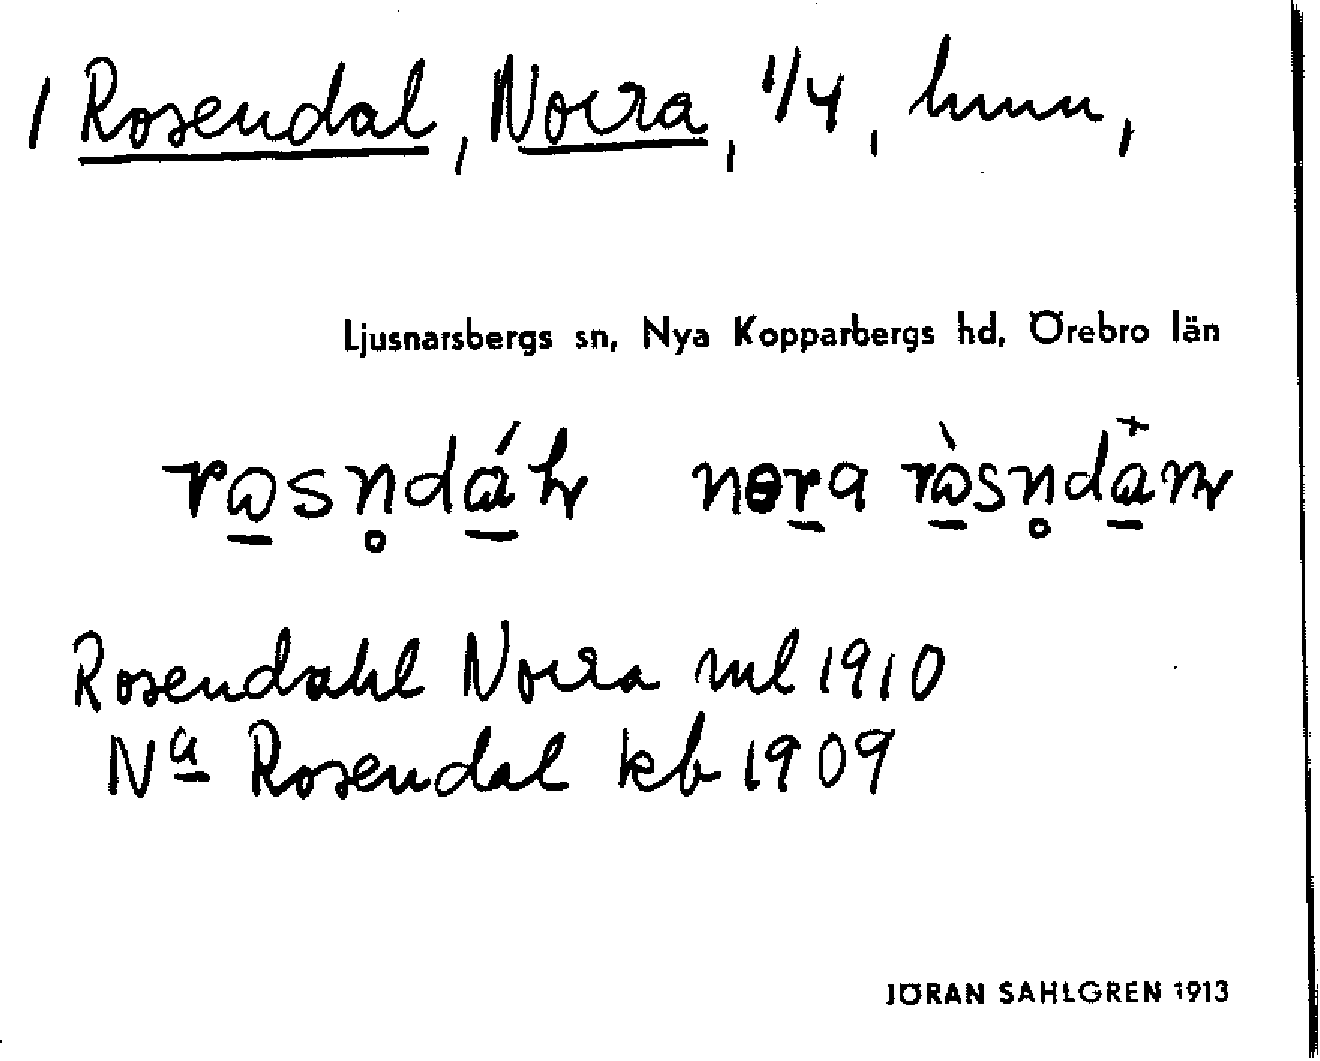 / Rosendal, Norra, 1/4, hmn,
Ljusnarsbergs sn, Nya Kopparbergs hd, Örebro län
Rosendahl Norra ml 1910
Na Rosendal kb 1909
JÖRAN SAHLGREN 1913